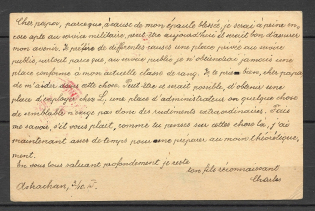 Cher papa, parceque à cause de mon épaule blessée, je serai à peine en-
core apte au service militaire, peut être aujourd'hui il serait bon d'assurer
mon avenir. Je préfère de différentes causes une place privée au service
public, surtout parceque, au service public je n'obtiendrai jamais une
place conforme à mon actuelle classe de rang. Je te prie bien, cher papa
de m'aider dans cette chose. Peut être il serait possible, d'obtenir une
place d'employé chez L, une place d'administrateur ou quelque chose
de semblable n'exige pas donc des rudiments extraordinaires. Fais
me savoir, s'il vous plaît, comme tu penses sur cette chose là, j'ai
maintenant assez de temps pour me préparer au moins théorétique-
ment.
En vous tous saluant profondement je reste
ton fils réconnaissant
Charles
Astrachan,